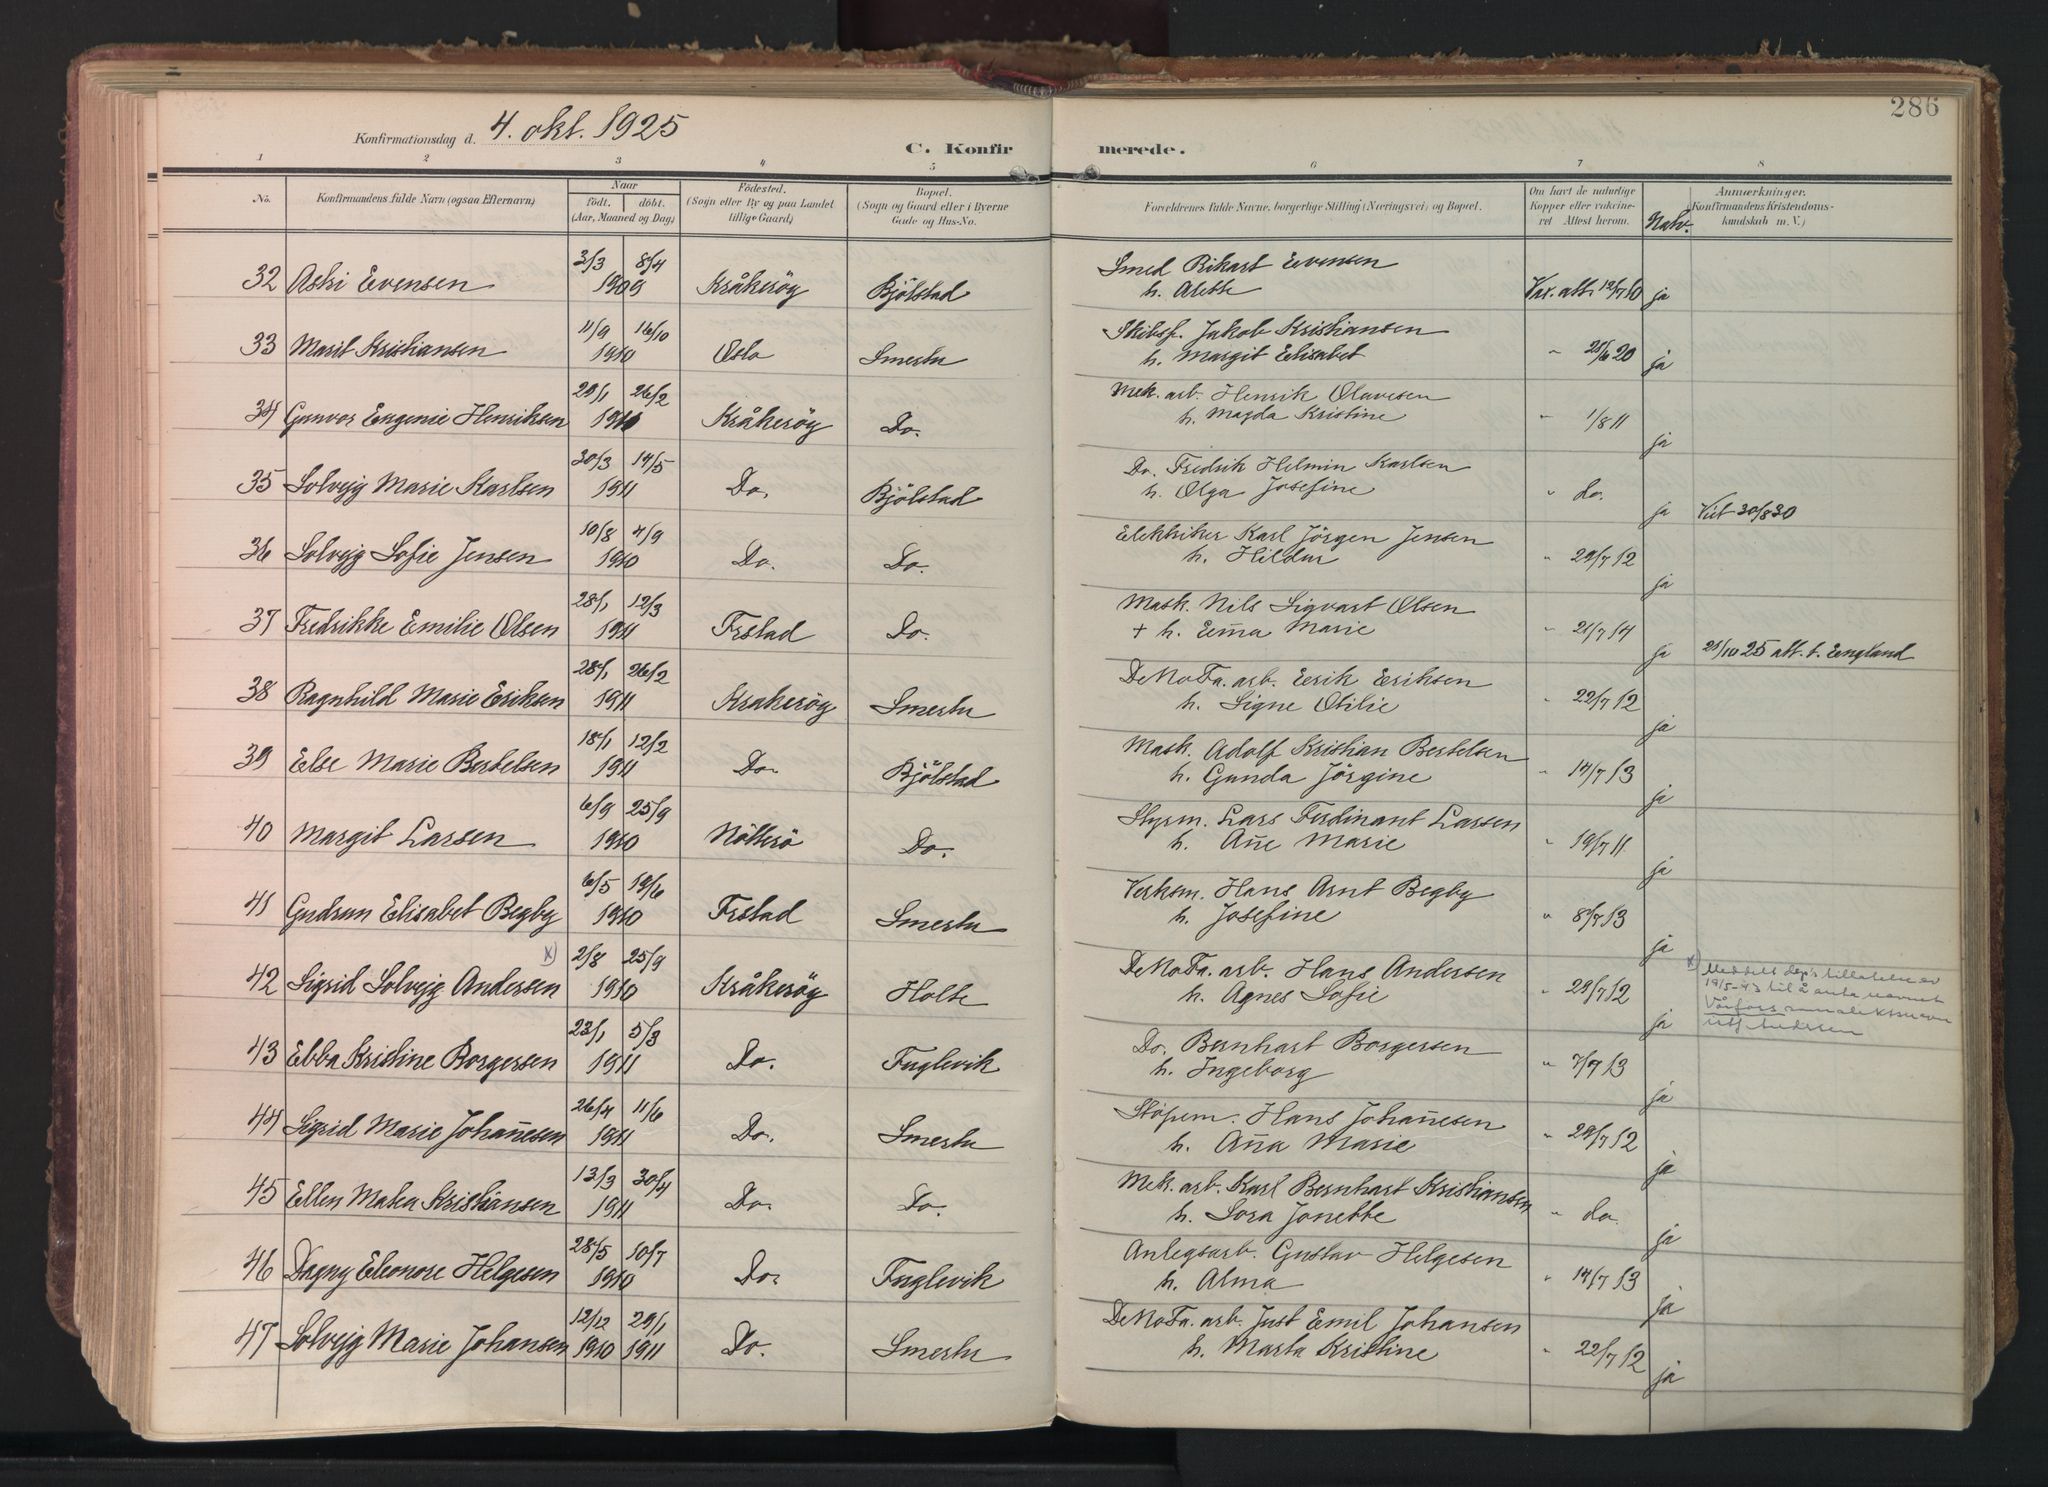 286
Konfirmationsdag d. 4. okt. 1925
C. Konfirmerede.
1 2 3 4 5 6 7 8
No. Konfirmandens fulde Navn (ogsaa Efternavn) Naar födt. döbt. (Aar, Maaned og Dag) Födested. (Sogn eller By og paa Landet tillige Gaard) Bopæl. (Sogn og Gaard eller i Byerne Gade og Hus-No. Forældrenes fulde Navne, borgerlige Stilling (Næringsvei) og Bopæl. Om havt de naturlige Kopper eller vakcineret Attest herom. Natv. Anmærkninger. (Konfirmandens Kristendomskundskab m. V.)
32 Aski Evensen 3/3 8/4 1909 Kråkeröy Bjölstad Smed Rikart Evensen
h. Alette Vax. att. 12/7 10 ja
33 Marit Kristiansen 11/9 16/10 1910 Oslo Smertu Skibsf. Jakob Kristiansen
h. Margit Elisabet " 28/6 20 ja
34 Gunvor Eugenie Henriksen 29/1 26/2 1911 Kråkeröy Do. Mek. arb. Henrik Olavesen
h. Magda Kristine " 1/8 11 ja
35 Solvejg Marie Karlsen 30/3 14/5 1911 Do. Bjölstad Do. Fredrik Helmin Karlsen
h. Olga Josefine " do. ja Vit 30/8 30
36 Solvejg Sofie Jensen 10/8 4/9 1910 Do. Do. Elektriker Karl Jörgen Jensen
h. Hildur " 29/7 12 ja
37 Fredrikke Emilie Olsen 28/1 12/3 1911 Frstad Do. Mask. Nils Sigvart Olsen
+ h. Em̄a Marie " 21/7 14 ja 21/10 25 att. t. England
38 Ragnhild Marie Eriksen 28/1 26/2 1911 Kråkeröy Smertu DeNoFa. arb. Erik Eriksen
h. Signe Otilie " 22/7 12 ja
39 Else Marie Bertelsen 18/1 12/2 1911 Do. Bjölstad Mask. Adolf Kristian Bertelsen
h. Gunda Jörgine " 14/7 13 ja
40 Margit Larsen 6/9 25/9 1910 Nötterö Do. Styrm. Lars Ferdinant Larsen
h. An̄e Marie " 19/7 11 ja
41 Gudrun Elisabet Begby 6/5 19/6 1910 Frstad Smertu Verksm. Hans Arnt Begby
h. Josefine " 8/7 13 ja
42 Sigrid Solvejg Andersen x) 2/8 25/9 1910 Kråkeröy Holte DeNoFa. arb. Hans Andersen
h. Agnes Sofie " 29/7 12 ja
x) Meddelt Dep's tillatelse av
19/5-43 til å anta navnet
43 Ebba Kristine Borgersen 23/1 5/3 1911 Do. Fuglevik Do. Bernhart Borgersen
h. Ingeborg " 7/7 13 ja
44 Sigrid Marie Johan̄esen 26/4 11/6 1911 Do. Smertu Stöpem. Hans Johan̄esen
h. An̄a Marie " 29/7 12 ja
45 Ellen Matea Kristiansen 13/3 30/4 1911 Do. Do. Mek. arb. Karl Bernhart Kristiansen
h. Lora Jonette " do. ja
46 Dagny Eleonore Helgesen 28/5 10/7 1910 Do. Fuglevik Anlegsarb. Gustav Helgesen
h. Alma " 14/7 13 ja
47 Solvejg Marie Johansen 12/12 1910 29/1 1911 Do. Smertu DeNoFa. arb. Just Emil Johansen
h. Marta Kristine " 22/7 12 ja